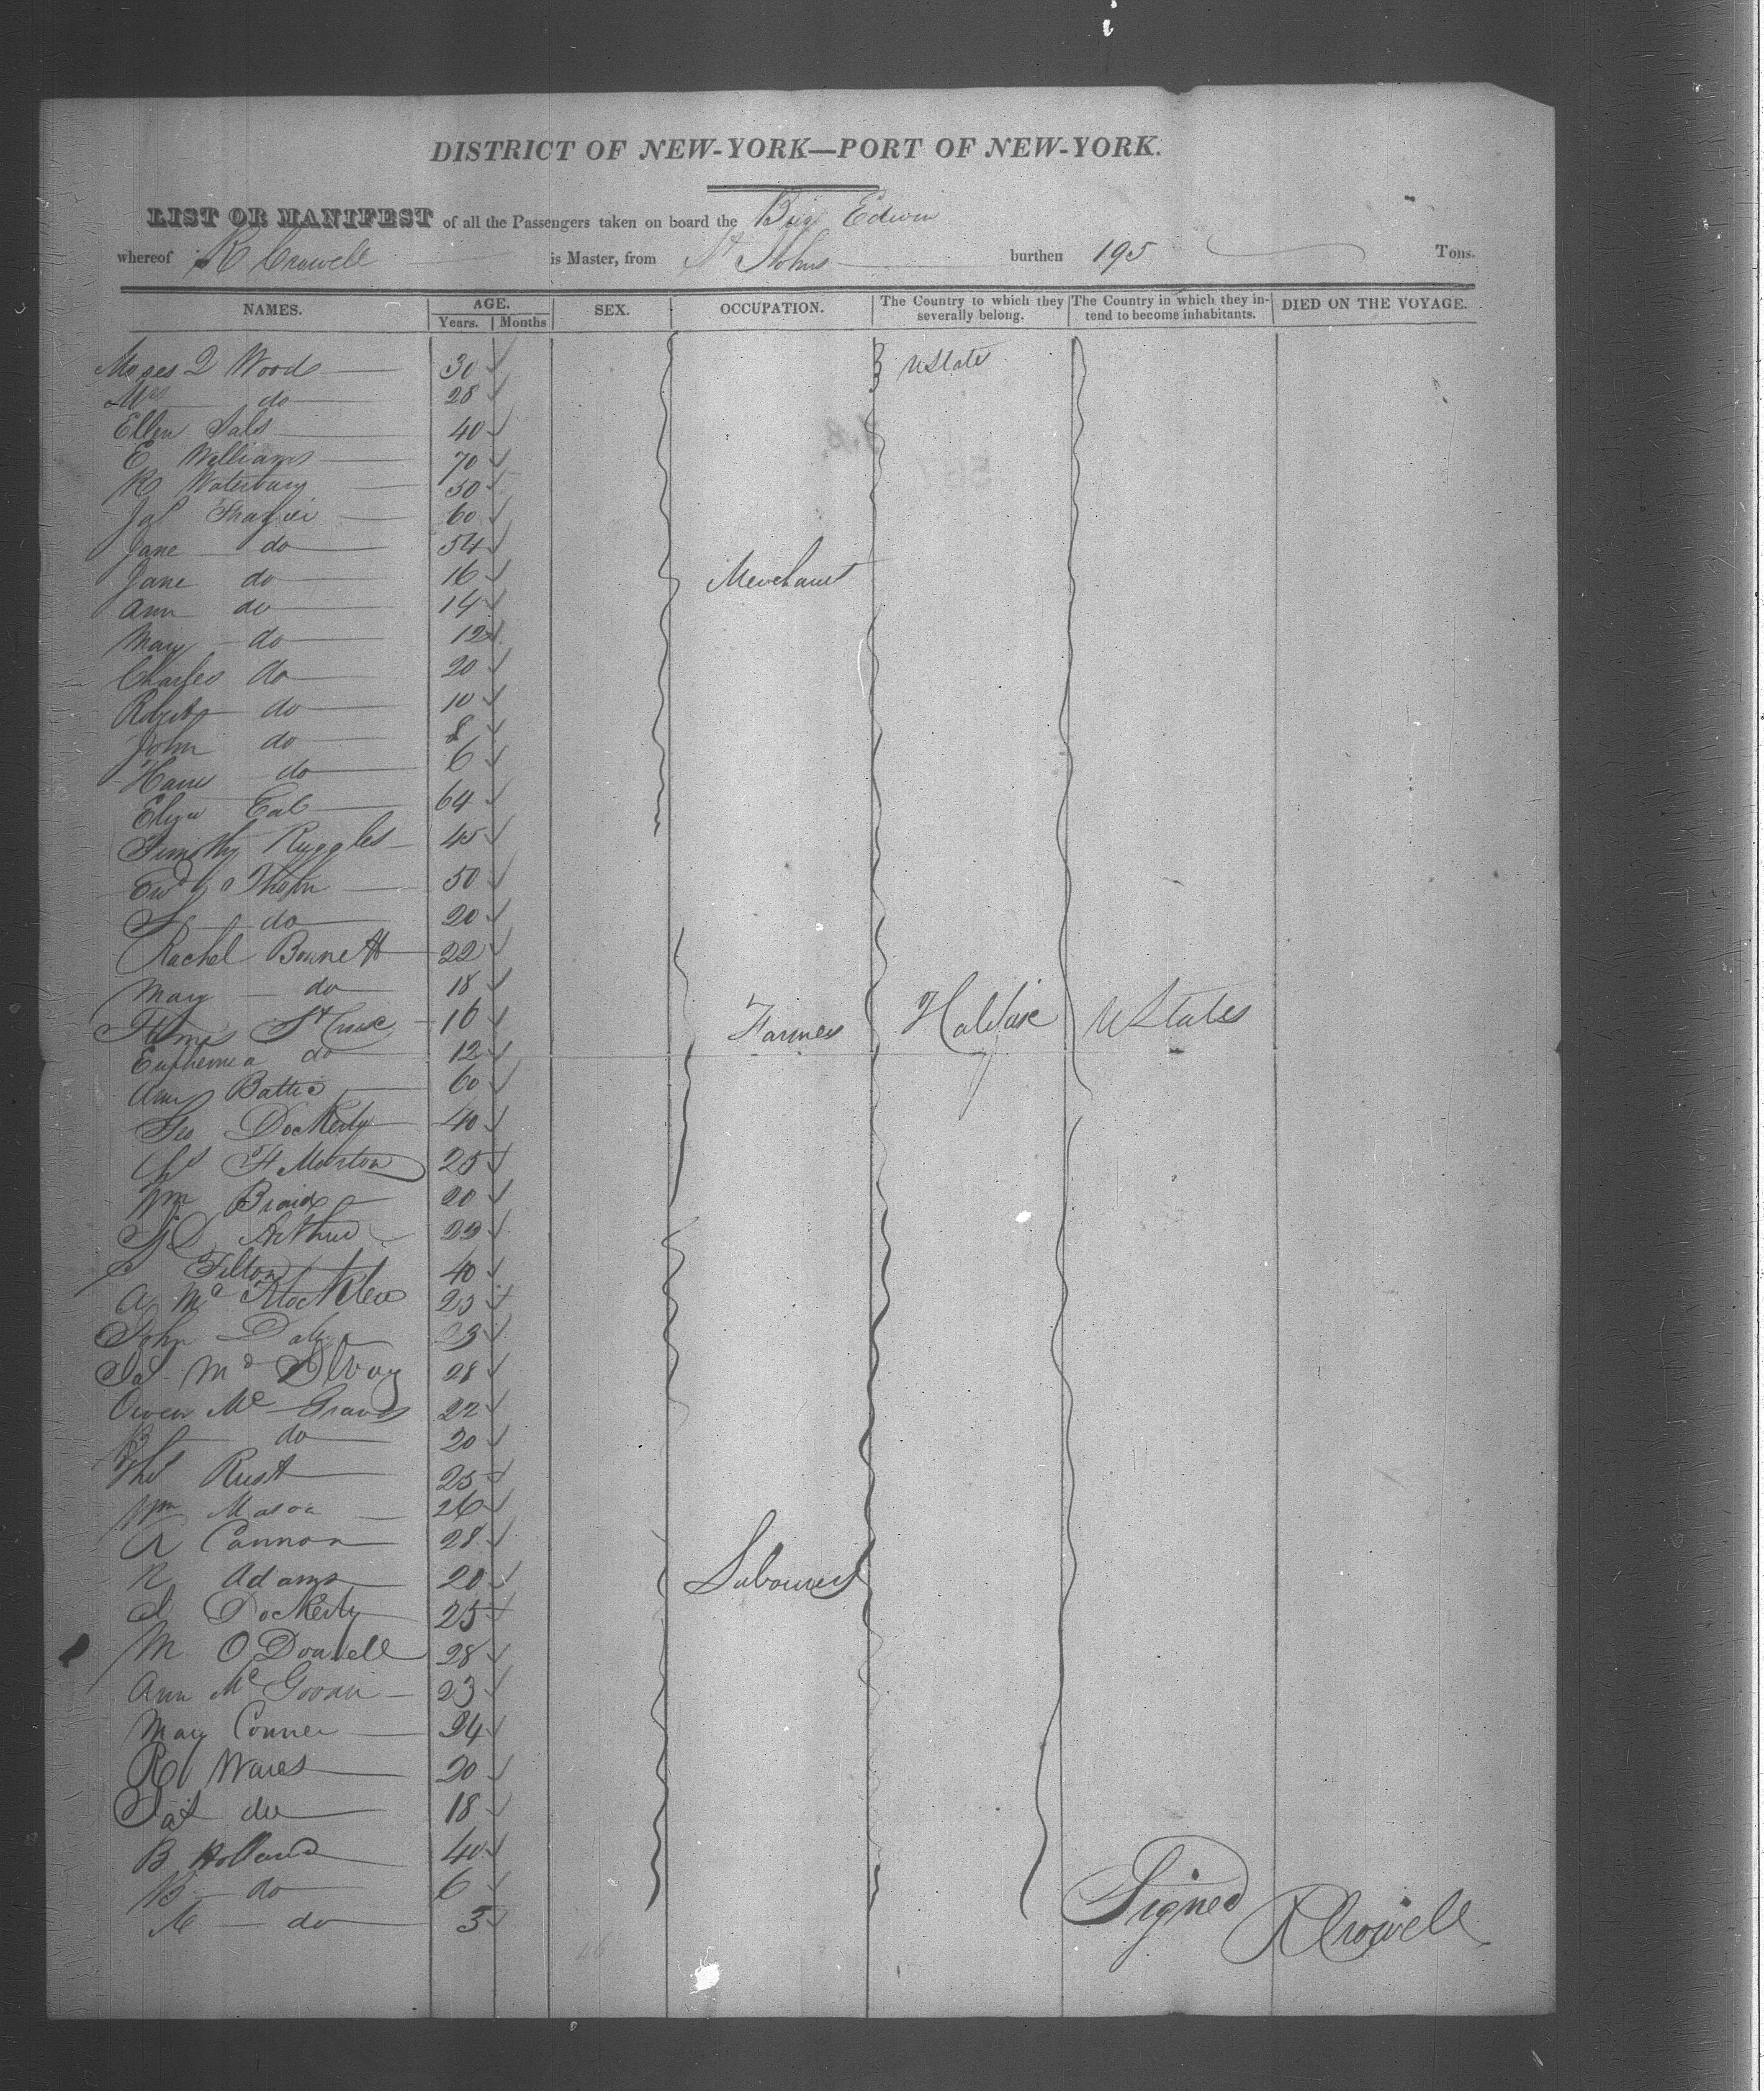 DISTRICT OF NEW-YORK—PORT OF NEW-YORK.
LIST OR MANIFEST of all the Passengers taken on board the Brig Edwin
whereof R Crowell is Master, from St Johns burthen 195 Tons.
NAMES. AGE. Years. Months SEX. OCCUPATION. The Country to which they severally belong. The Country in which they intend to become inhabitants. DIED ON THE VOYAGE.
Moses Woods 30 UState
Mrs do 28
Ellen 40
E Williams 70
R Waterbury 50
Jas Frazier 60
Jane do 54
Jane do 16 Merchant
Ann do 14
Mary do 12
Charles do 20
Robert do 10
John do 8
do 6
Eliza 64
Timothy Ruggles 45
Ewd Thorn 50
S do 20
Rachel Bonnett 22
Mary do 18
St Croix 16 Farmer Halifax UStates
Euphemia do 12
Battie 60
Geo Dockerty 40
Morton 25
Wm 20
Arthur 22
Tilton 40
A Mc 25
John Daly 23
Jas Mc 28
Owen Mc 22
do 20
Thos Rust 25
Wm Mason 26
A Cannon 28
R Adams 20 Labourers
Dockerty 25
M ODonnell 28
Ann Mc Govan 23
Mary Conner 24
R Wares 20
Pat do 18
B Holland 40
B do 6
M do 3
Signed R Crowell